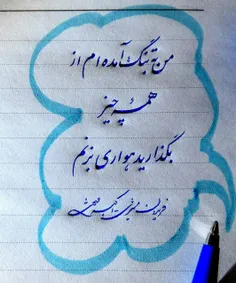 من به تنگ آمده ام از
همه چیز
بگذارید هواری بزنم
فریدون مشیری